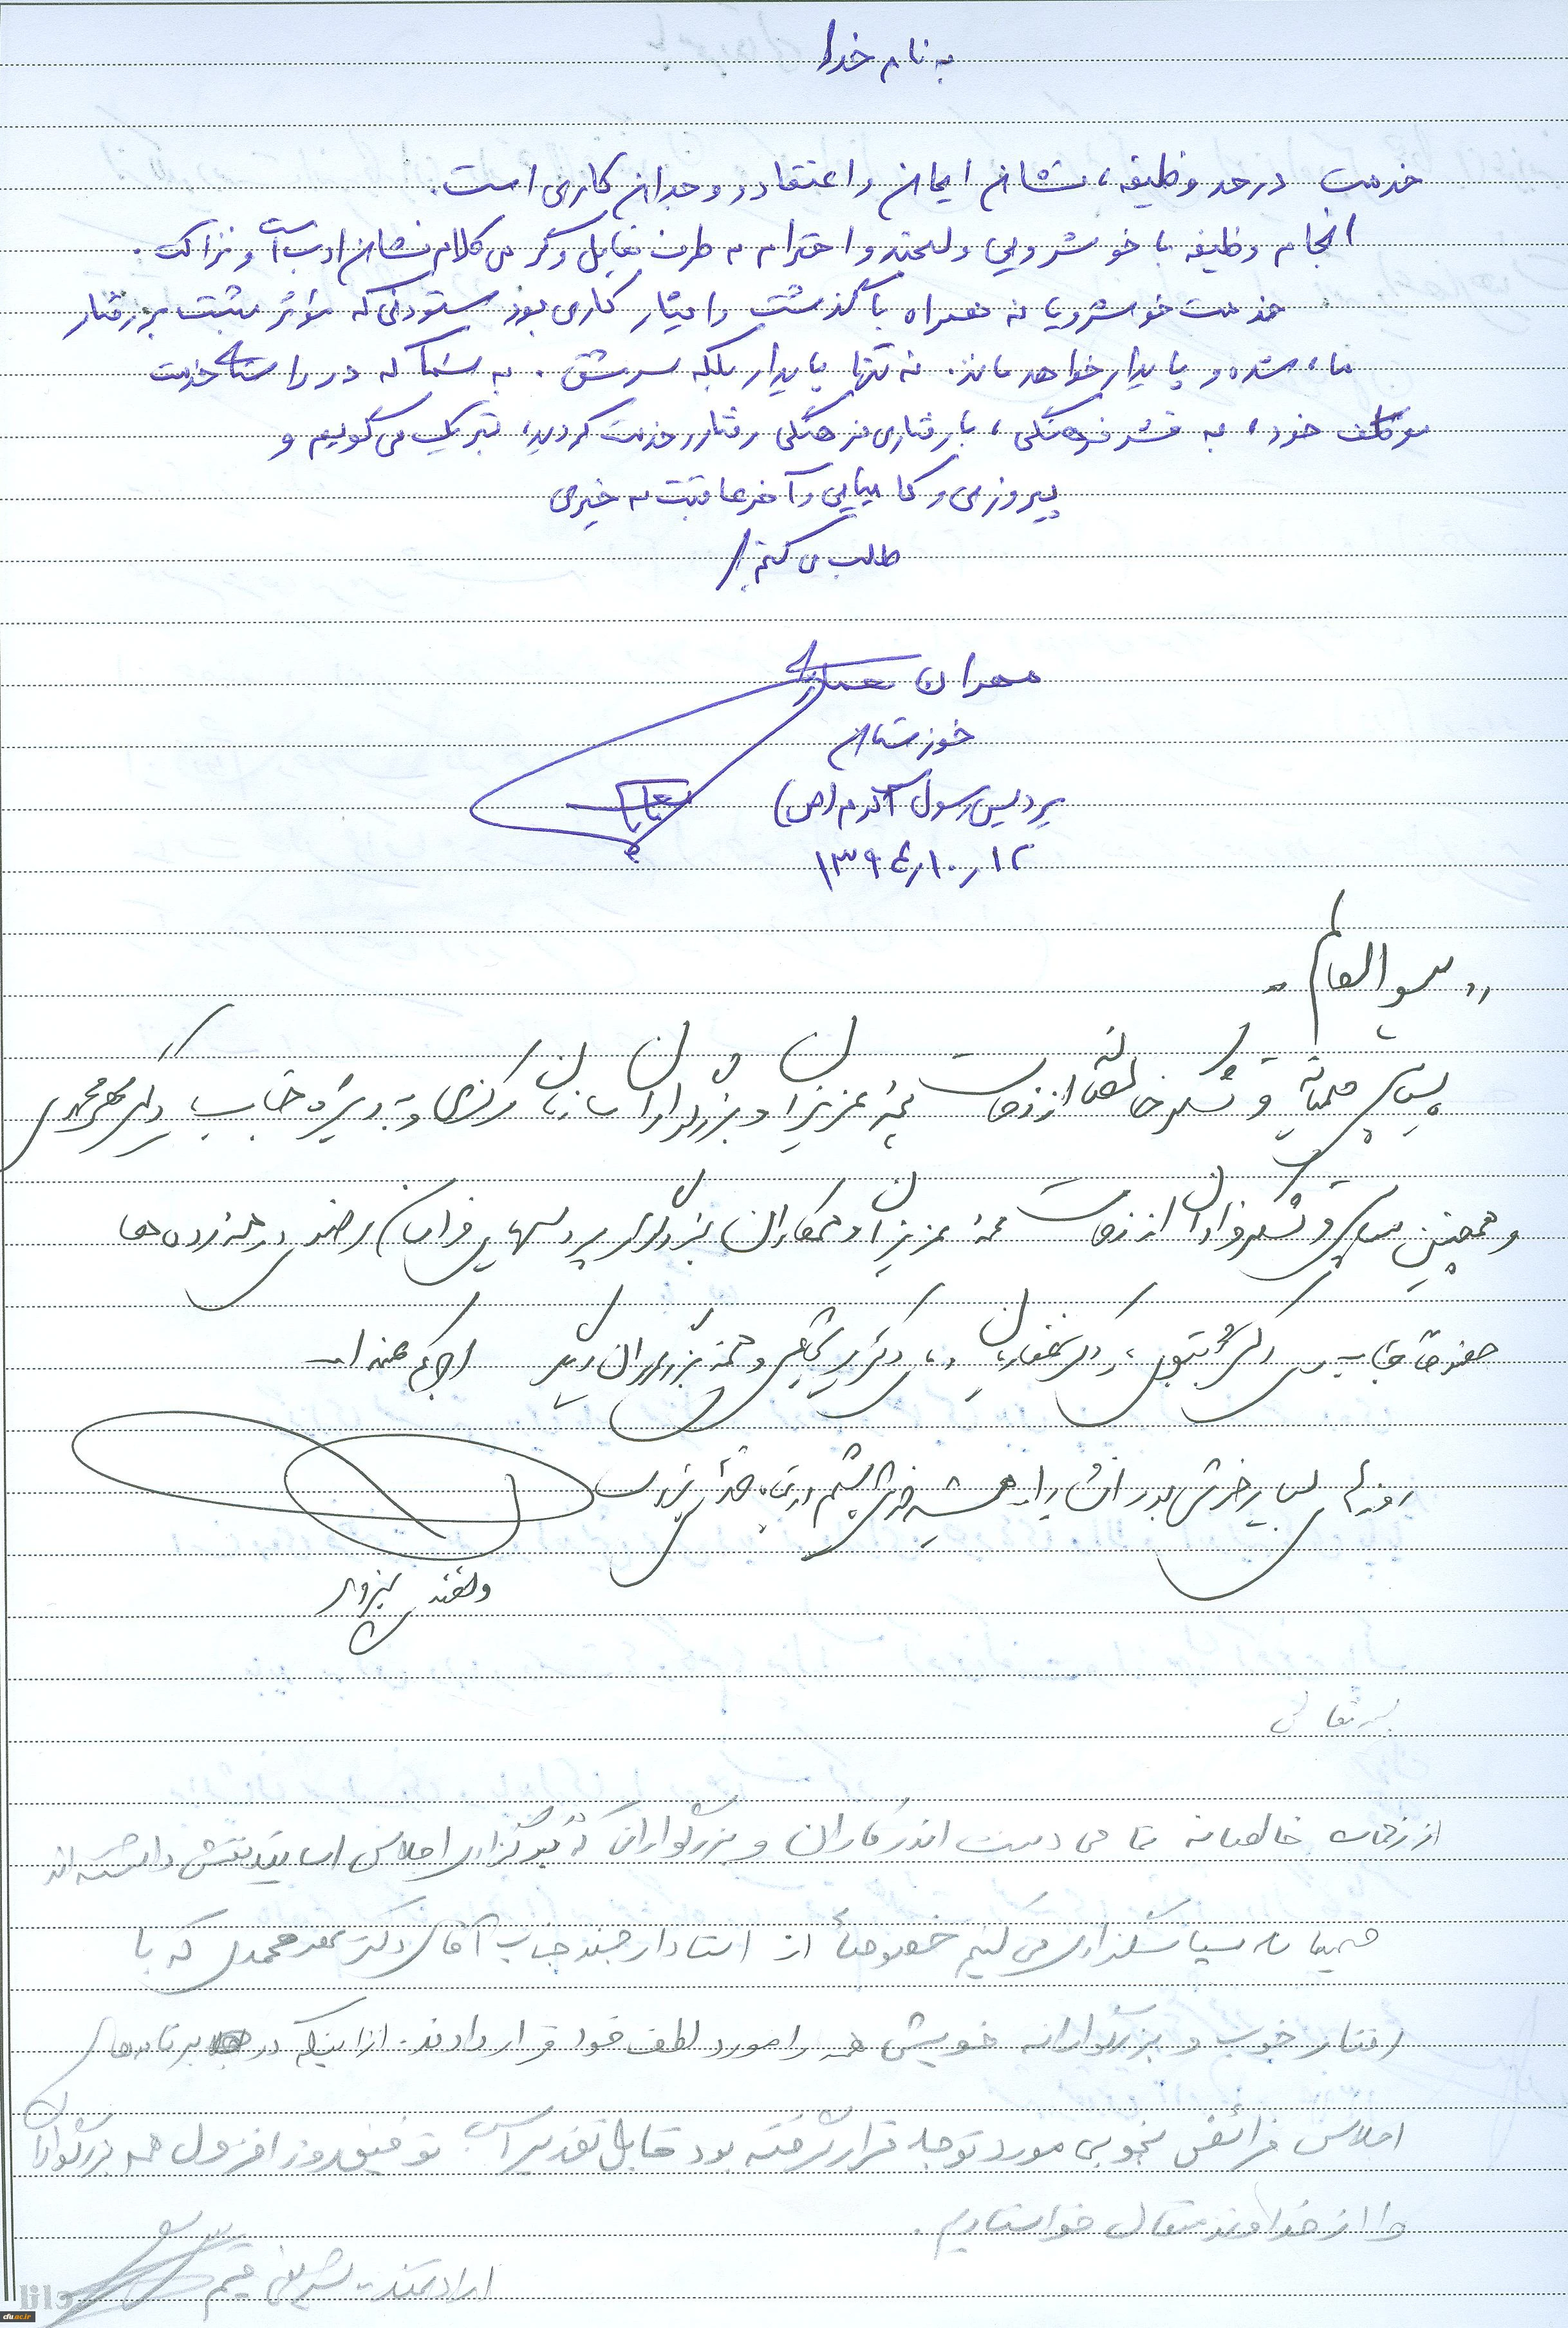 به نام خدا
خدمت در حد وظیفه، نشان ایمان و اعتقاد و وجدان کاری است.
انجام وظیفه با خوشرویی و لبخند و احترام به طرف مقابل و گرمی کلام نشان ادب است و نزاکت.
خدمت خوشرویانه همراه با گذشت و ایثار کاری بود ستودنی که مؤثر مثبت بر رفتار
ما، شده و پایدار خواهد ماند. نه تنها پایدار بلکه سرمشق. به شما که در راستای خدمت
موظف خود، به قشر فرهنگی، با رفتاری فرهنگی رفتار و خدمت کردید، تبریک می گویم و
پیروزی و کامیابی و آخر عاقبت به خیری
طالب می کنم/
مهران
خوزستان
پردیس رسول اکرم (ص)
۱۳۹۴٫۱۰٫۱۲
"بسم العالم"
سپاس صمیمانه و تشکر خالصانه از زحمات همه عزیزان و بزرگواران سازمان مرکزی و به ویژه جناب دکتر مهرمحمدی
و همچنین سپاس و تشکر فراوان از زحمات همه عزیزان و همکاران بزرگوار پردیسهای خراسان رضوی در همه رده ها
خصوصاً جناب دکتر و همه بزرگواران دیگر اجرکم عندالله
روزهای بسیار خوشی بود
بسمه تعالی
از زحمات خالصانه تمامی دست اندرکاران و بزرگوارانی که در برگزاری اجلاس اساتید نقش داشته اند
صمیمانه سپاسگزاری می کنیم خصوصاً از استاد ارجمند جناب آقای دکتر مهرمحمدی که با
رفتار خوب و بزرگوارانه خویش همه را مورد لطف خود قرار دادند. از اینکه در برنامه های
اجلاس فرائض بخوبی مورد توجه قرار گرفته بود قابل تقدیر است توفیق روز افزون همه بزرگواران
را از خداوند متعال خواستاریم.
ارادتمند - شریفی
cfu.ac.ir